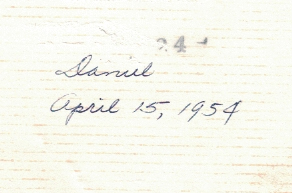 24
Daniel
April 15, 1954